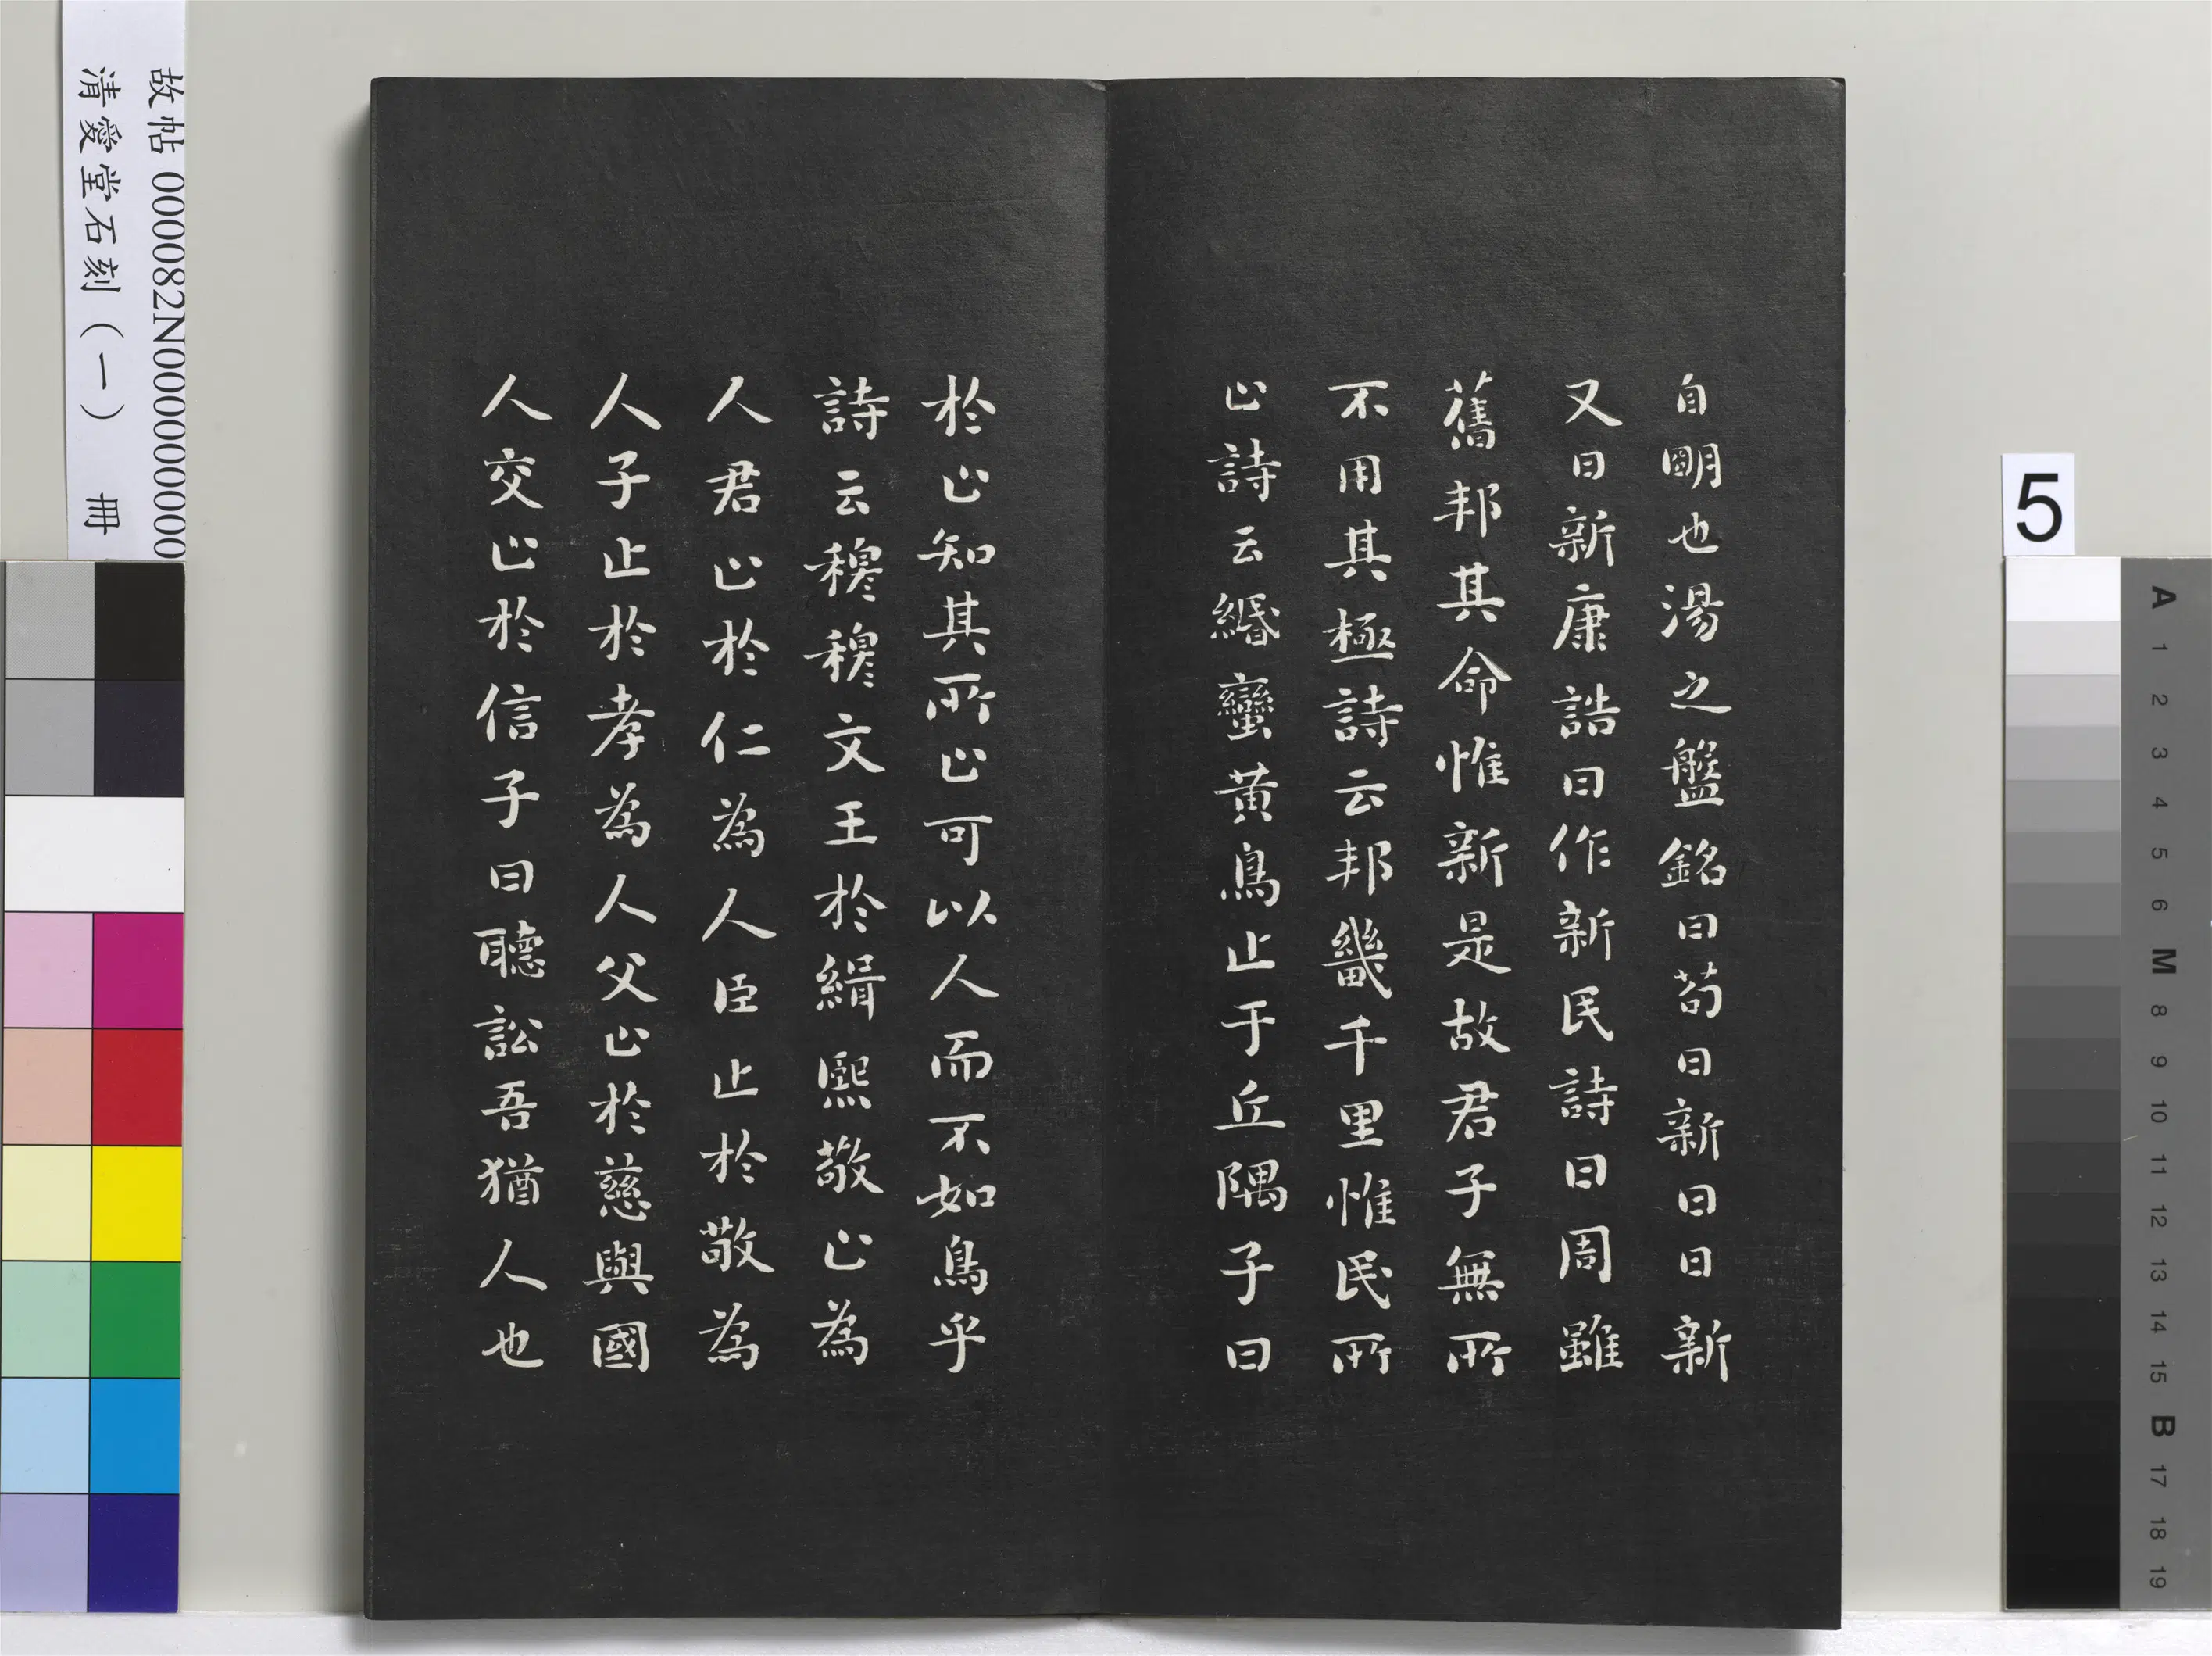 自明也湯之盤銘曰苟日新日日新
又日新康誥曰作新民詩曰周雖
舊邦其命惟新是故君子無所
不用其極詩云邦畿千里惟民所
止詩云緡蠻黃鳥止于丘隅子曰
於止知其所止可以人而不如鳥乎
詩云穆穆文王於緝熙敬止為
人君止於仁為人臣止於敬為
人子止於孝為人父止於慈與國
人交止於信子曰聽訟吾猶人也
故帖 000082N000000000
清愛堂石刻（一） 冊
5
A
1
2
3
4
5
6
M
8
9
10
11
12
13
14
15
B
17
18
19